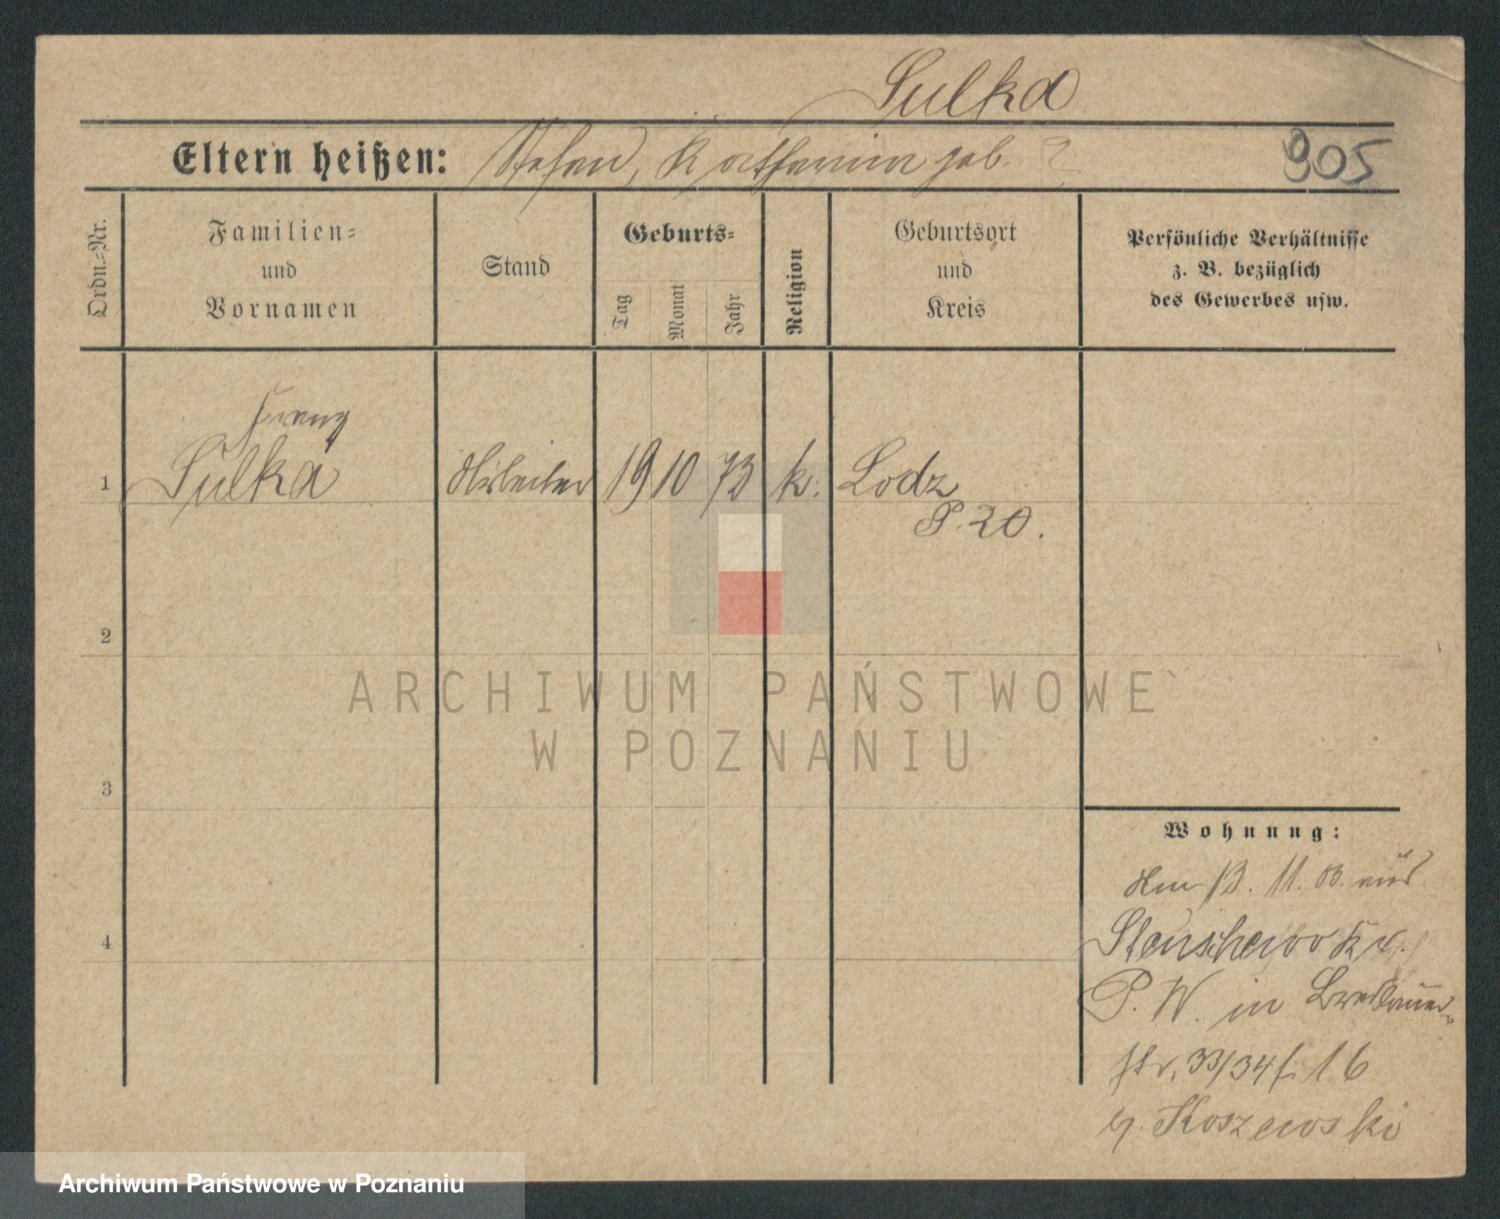 Sulka
Eltern heißen: Stefan, Katharina geb. ?
905
Ordn.-Nr.
Familien-
und
Vornamen
Stand
Geburts-
Tag
Monat
Jahr
Religion
Geburtsort
und
Kreis
Persönliche Verhältnisse
z. B. bezüglich
des Gewerbes usw.
Franz
1 Sulka Arbeiter 19 10 73 k. Lodz
P. 20.
2
3
4
Wohnung:
Am 13. 11. 13. aus
Stenschewo Kr.
P. W. in Breslauer-
str. 33/34 f. 16
Koszewski
ARCHIWUM PAŃSTWOWE
W POZNANIU
Archiwum Państwowe w Poznaniu